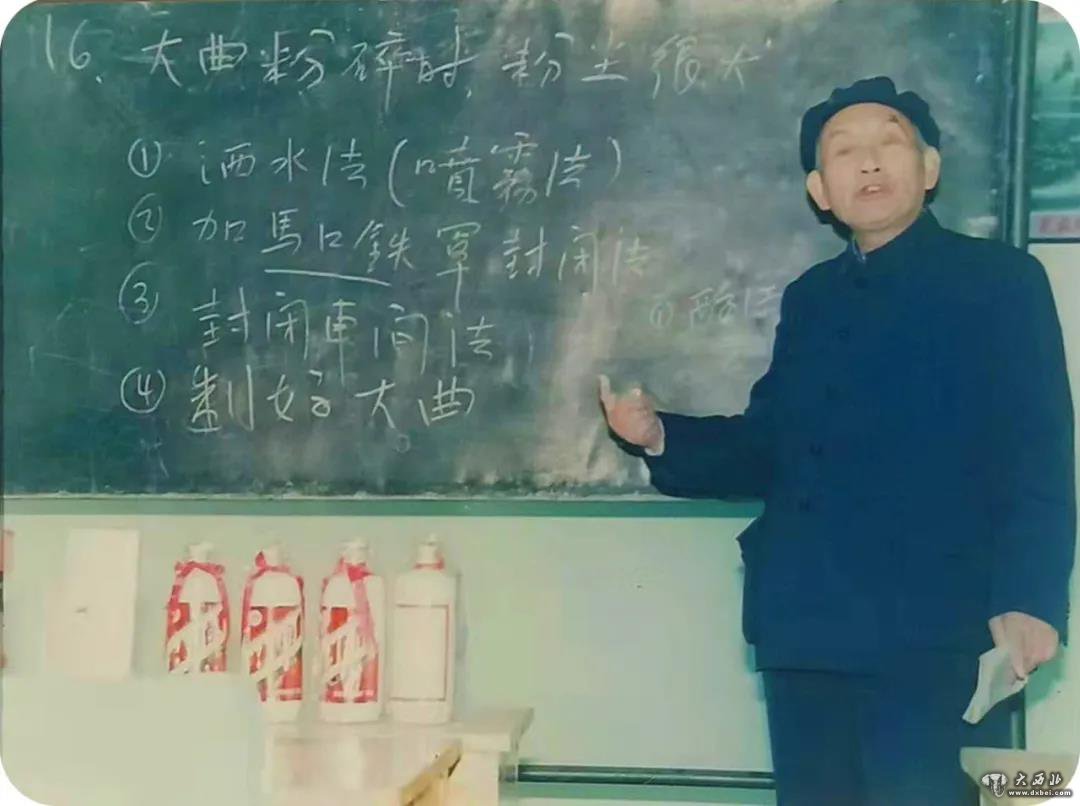 16、大曲粉碎时，粉土很大
① 洒水法(噴霧法)
② 加馬口鉄罩封闭法
③ 封闭車间法
① 酸法
④ 制好大曲。
大西北
www.dxbei.com